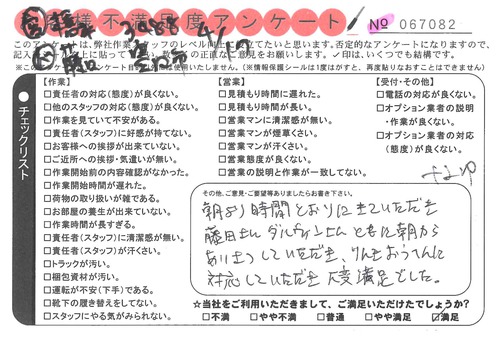 様 不満足度アンケート
No 067082
このアンケートは、弊社作業スタッフのレベル向上に役立てたいと思います。否定的なアンケートになりますので、
チェックリスト
【作業】
□責任者の対応(態度)が良くない。
□他のスタッフの対応(態度)が良くない。
□作業を見ていて不安がある。
□責任者(スタッフ)に好感が持てない。
□お客様への挨拶が出来ていない。
□ご近所への挨拶・気遣いが無い。
□作業開始前の内容確認がなかった。
□作業開始時間が遅れた。
□荷物の取り扱いが雑である。
□お部屋の養生が出来ていない。
□作業時間が長すぎる。
□責任者(スタッフ)に清潔感が無い。
□責任者(スタッフ)が汗くさい。
□トラックが汚い。
□梱包資材が汚い。
□運転が不安(下手)である。
□靴下の履き替えをしてない。
□スタッフにやる気がみられない。
【営業】
□見積時間に遅れた。
□見積もり時間が長い。
□営業マンに清潔感が無い。
□営業マンが煙草くさい。
□営業マンが汗くさい。
□営業態度が良くない。
□営業の説明と作業が一致してない。
【受付・その他】
□電話の対応が良くない。
□オプション業者の説明
・作業が良くない。
□オプション業者の対応
(態度)が良くない。
その他、ご意見・ご要望等ありましたらお書き下さい。
朝より時間とおりに来ていただき
藤田さん
ともに朝から
あいさつしていただき、
対応していただき 大変満足でした。
☆当社をご利用いただきまして、ご満足いただけたでしょうか?
□不満 □やや不満 □普通 □やや満足 ☑満足